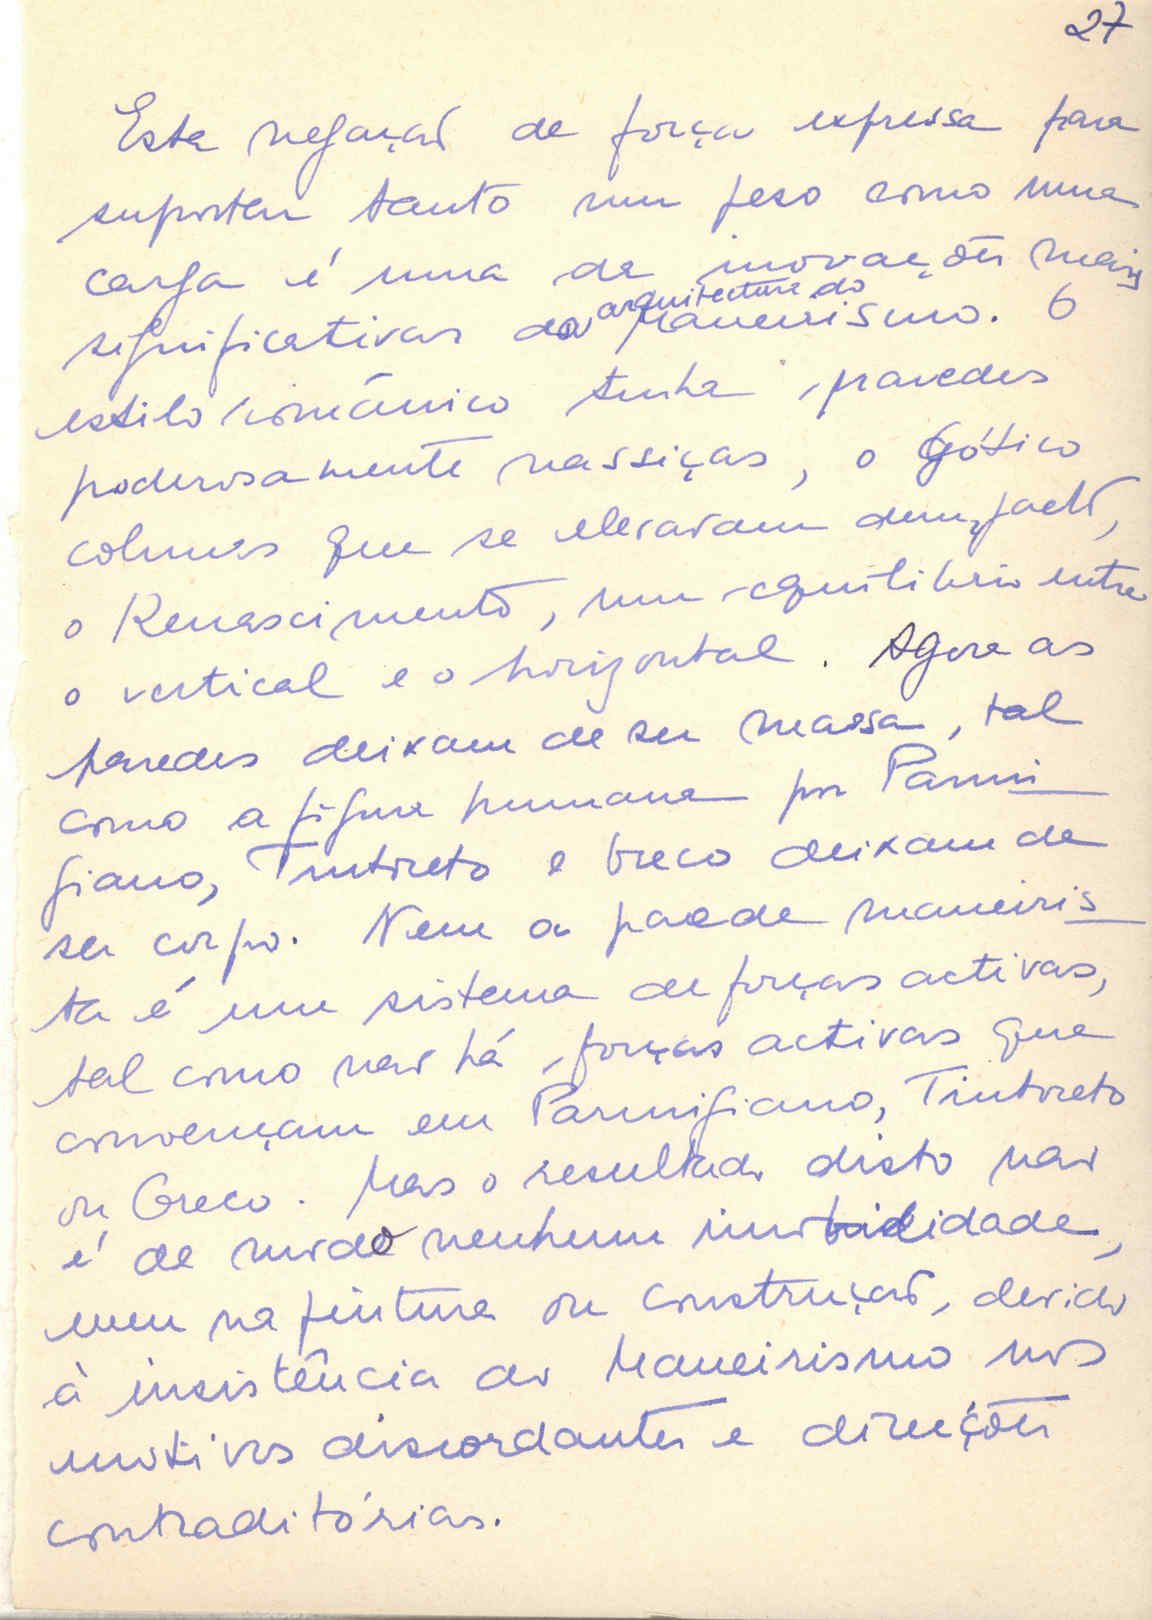 27
Esta negação de força expressa para
suportar tanto um peso como uma
carga é uma de inovações mais
significativas da arquitectura do Maneirismo. O
estilo românico tinha paredes
poderosamente massiças, o Gótico
colunas que se elevavam
o Renascimento, um equilíbrio entre
o vertical e o horizontal. Agora as
paredes deixam de ser massa, tal
como a figura humana por Parmi
giano, Tintoreto e Greco deixam de
ser corpo. Nem a parede maneiris
ta é um sistema de forças activas,
tal como não há forças activas que
convençam em Parmigiano, Tintoreto
ou Greco. Mas o resultado disto não
é de modo nenhum
nem na pintura ou construção, devido
à insistência do Maneirismo nos
motivos discordantes e direções
contraditórias.